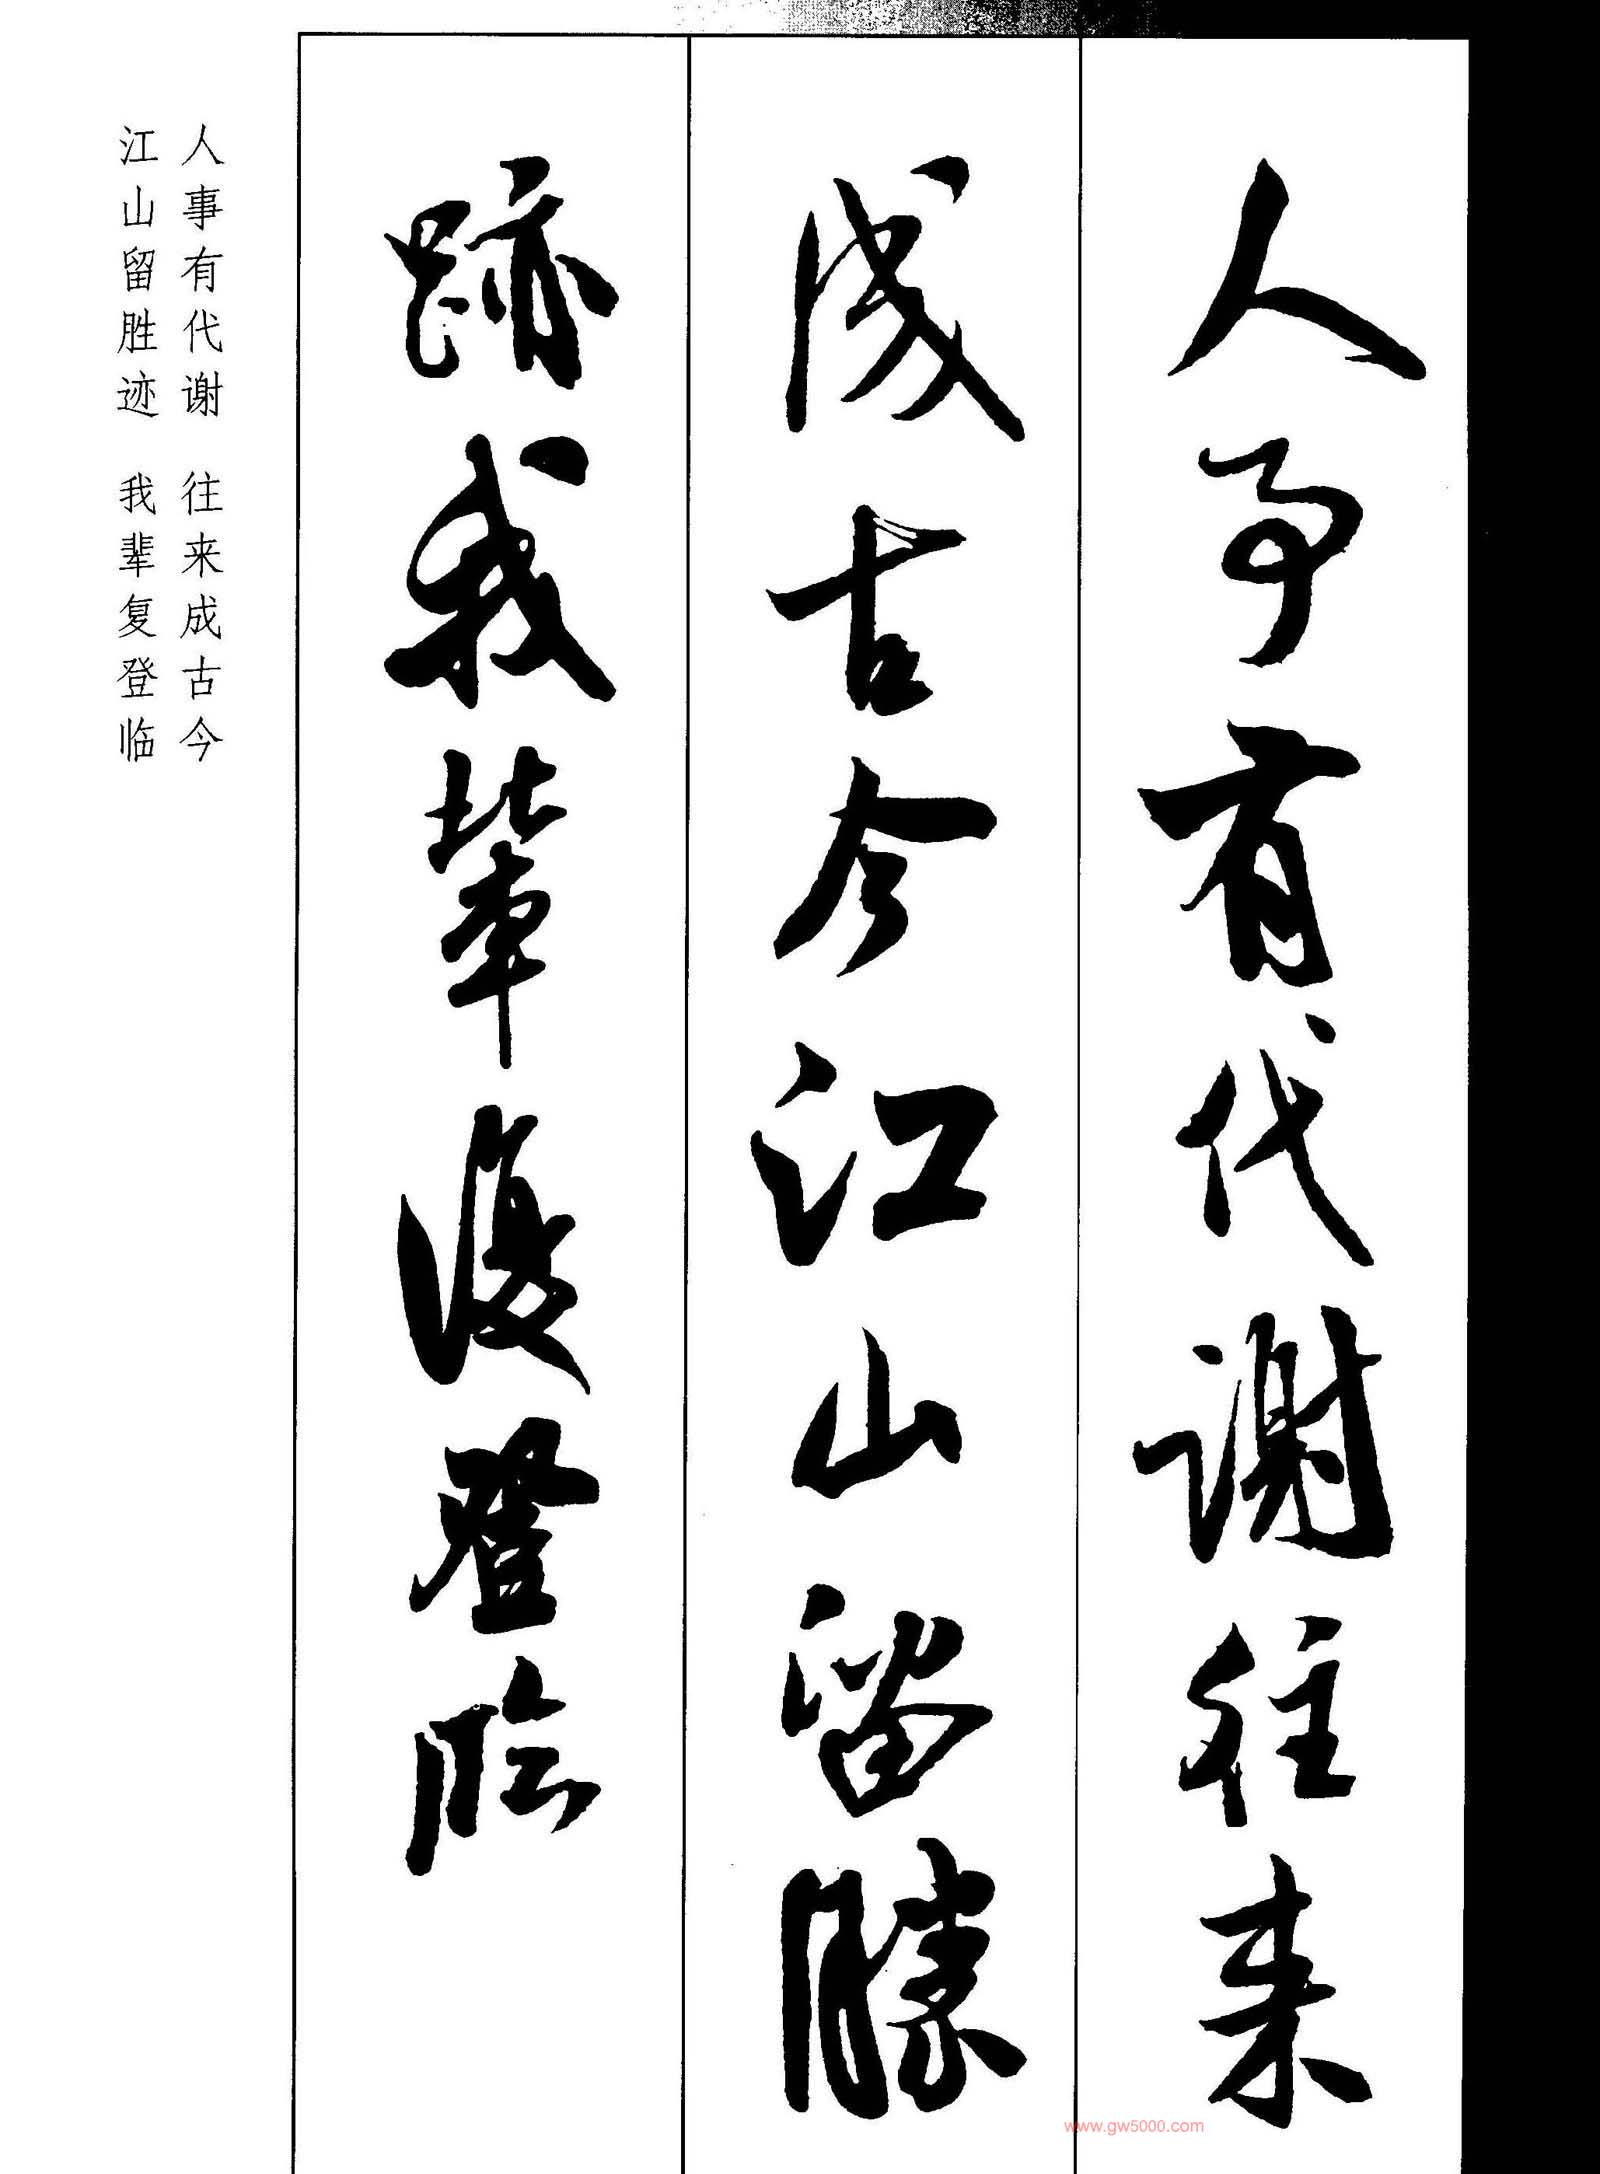 人事有代谢往来
成古今江山留勝
跡我輩復登临
人事有代谢 往来成古今
江山留胜迹 我辈复登临
www.gw5000.com